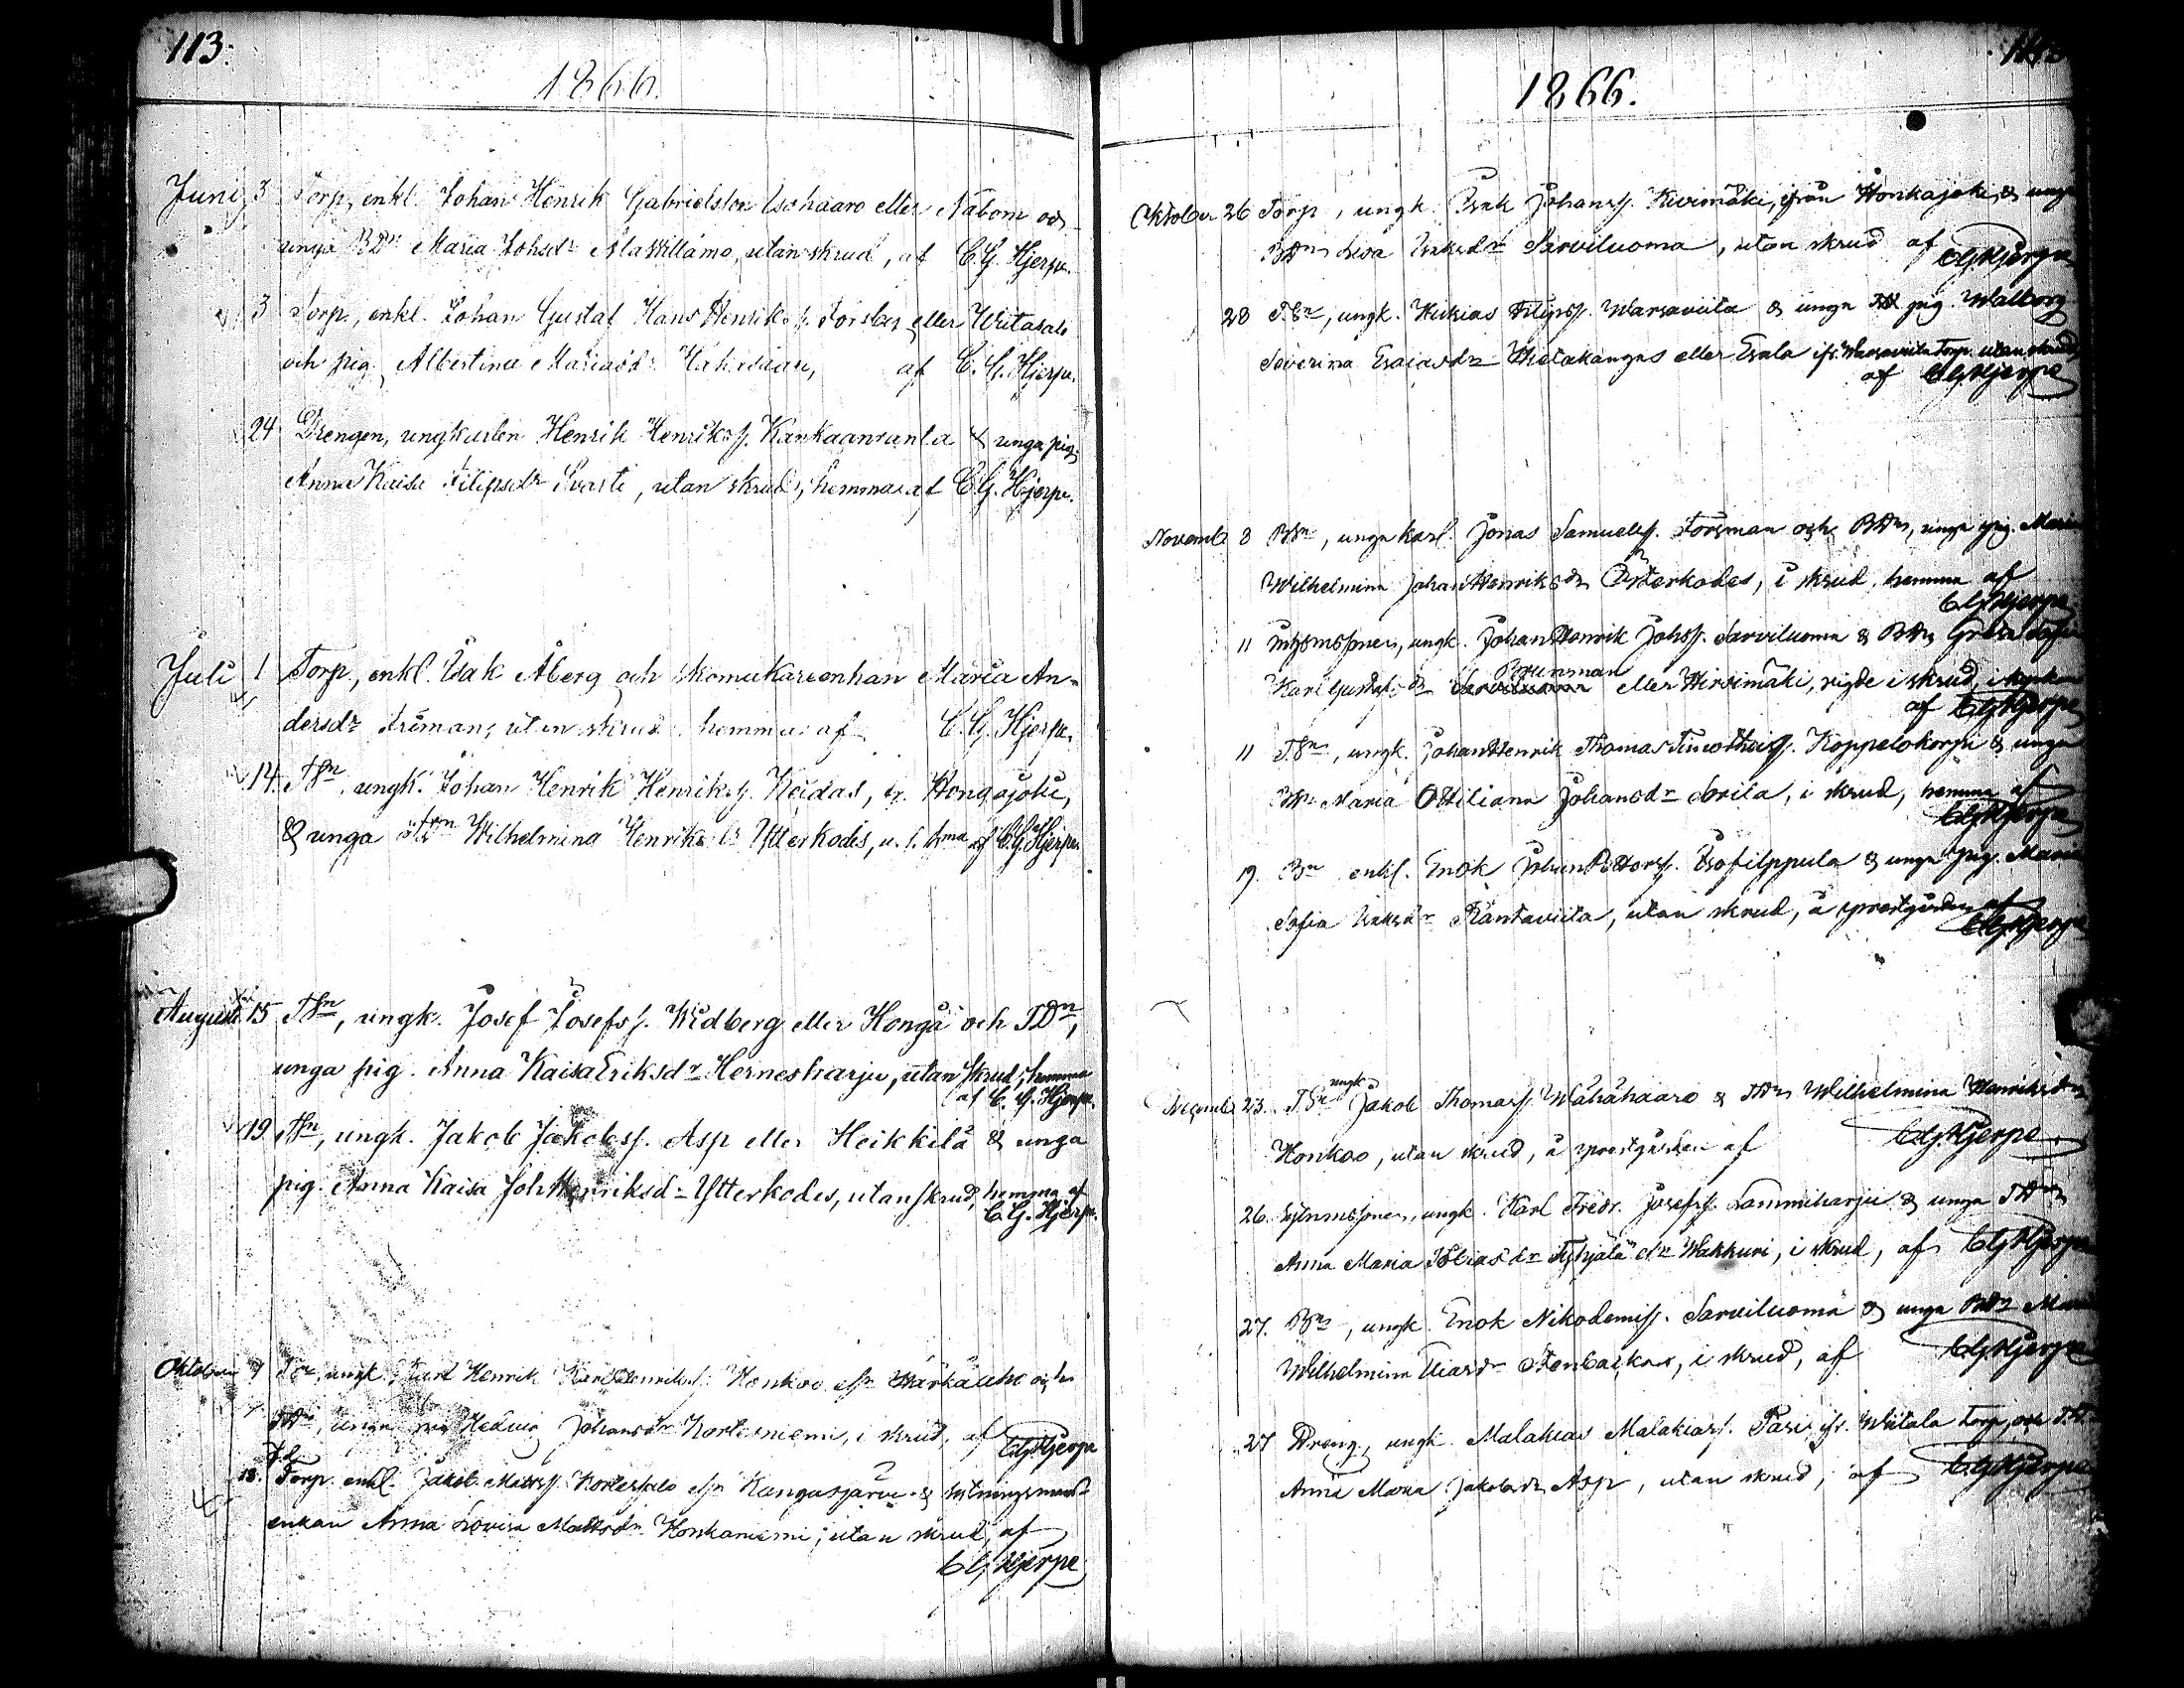 113.
1866.
Juni 3 Torp, enkl. Johan Henrik Gabrielsson Isohaaro eller Nabom och
unga BDn Maria Johsdr Alawillamo, utan skrud, af C. G. Hjerpe.
3 Torp, enkl. Johan Gustaf Hans Henriks s. Forsbg eller Witasalo
och pig. Albertina Mariasdr af C. G. Hjerpe.
24 Drengen, ungkarlen Henrik Henrikss. Kankaanranta & unga pig.
Anna Kaisa Filipsdr Svasti, utan skrud, hemma af C. G. Hjerpe.
Juli 1 Torp, enkl. Isak Åberg och skomakareenkan Maria An-
dersdr utan skrud hemma af C. G. Hjerpe.
14. TSn, ungk. Johan Henrik Henrikss. Keidas, fr. Hongojoki,
& unga Wilhelmina Henriksdr Ytterkodes, u. s. hma af C. G. Hjerpe.
Augusti 15 TSn, ungk. Josef Josefs s. Widberg eller Hongå och TDn,
unga pig. Anna Kaisa Eriksdr Hernesharju, utan skrud, hemma
af C. G. Hjerpe.
19 TSn, ungk. Jakob Jakobs s. Asp eller Heikkilä & unga
pig. Anna Kaisa Joh Henriksdr Ytterkodes, utan skrud, hemma af
C. G. Hjerpe.
Oktober ungk. Karl Henrik Karl Henrikss. Honkoo och
TDn, unga pig Hedvig Johansdr Kortesniemi, i skrud, af CGHjerpe
18. Torp. enkl. Jakob Matts s. Kortessalo Kangasjärvi & sytningsmans
enkan Anna Lovisa Mattsdr Honkaniemi, utan skrud, af
CGHjerpe
1866.
Oktober 26 Torp, ungk. Isak Johanss. Kivimäki, från Honkajoki, & unga
BDn Isaksdr Sarviluoma, utan skrud af CGHjerpe
28 TSn, ungk. Filipss. Warsaviita & unga pig. Walborg
Severina Esaiasdr Wietakangas eller Esala ifr. Warsaviita Torp. utan skrud,
af CGHjerpe
Novemb. 8 BSn, unga karl. Jonas Samuelss. Forsman och BDn, unga pig. Maria
Wilhelmina Johan Henriksdr Ytterkodes, i skrud, hemma af
CGHjerpe
11 ungk. Johan Henrik Johss. Sarviluoma & BDn Greta Sofia
Karl Gustafsdr Brunsman eller Hirsimäki, vigde i skrud, i kyrkan
af CGHjerpe
11 TSn, ungk. Johan Henrik Thomas Timotheuss. Koppelokorpi & unga
Maria Ottiliana Johansdr i skrud, hemma af
CGHjerpe
19. enkl. Enok Johan Pettorss. Isofilppula & unga pig. Maria
Sofia Isaksdr Rantaviita, utan skrud, å prestgården af
CGHjerpe
Decemb. 23. TSn ungk Jakob Thomass. Wähähaaro & TDn Wilhelmina Henriksdr
Honkoo, utan skrud, å prestgården af CGHjerpe
26. ungk. Karl Fredr. Josefss. Lammiharju & unga TDn
Anna Maria Tobiasdr Wakkuri, i skrud, af CGHjerpe
27. BSn, ungk. Enok Nikodemiss. Sarviluoma & unga BDn Maria
Wilhelmina Eliasdr Stenbacka, i skrud, af CGHjerpe
27 Dreng, ungk. Malakias Malakiass. Pasi, ifr. Wiitala Torp, och TDn
Anna Maria Jakobsdr Asp, utan skrud, af CGHjerpe